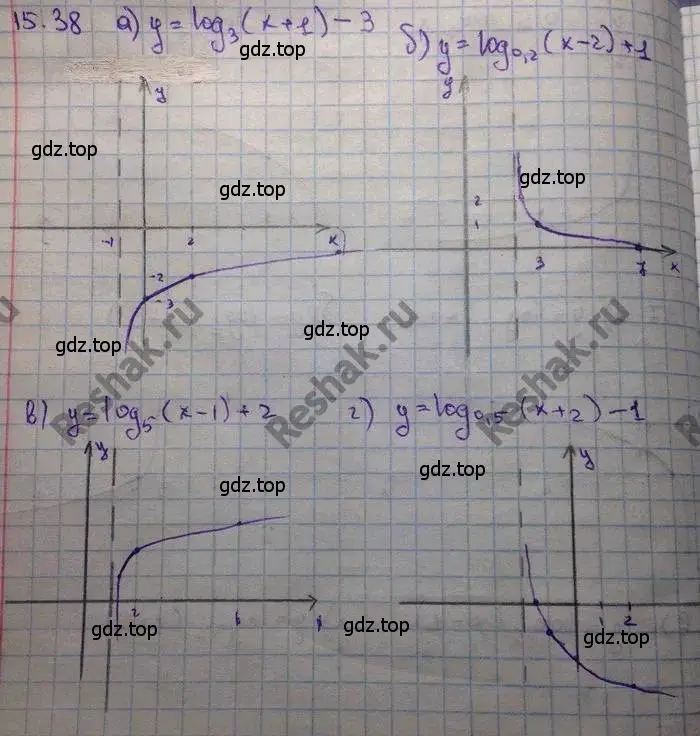 15.38 а) y = log₃(x+1) - 3
б) y = log₀,₂(x-2) + 1
gdz.top
y
y
gdz.top
gdz.top
gdz.top
2
1
-1
2
x
3
7
x
-2
-3
gdz.top
gdz.top
Reshak.ru
Reshak.ru
в) y = log₅(x-1) + 2
г) y = log₀,₅(x+2) - 1
y
y
gdz.top
gdz.top
2
6
x
1
2
gdz.top
gdz.top
gdz.top